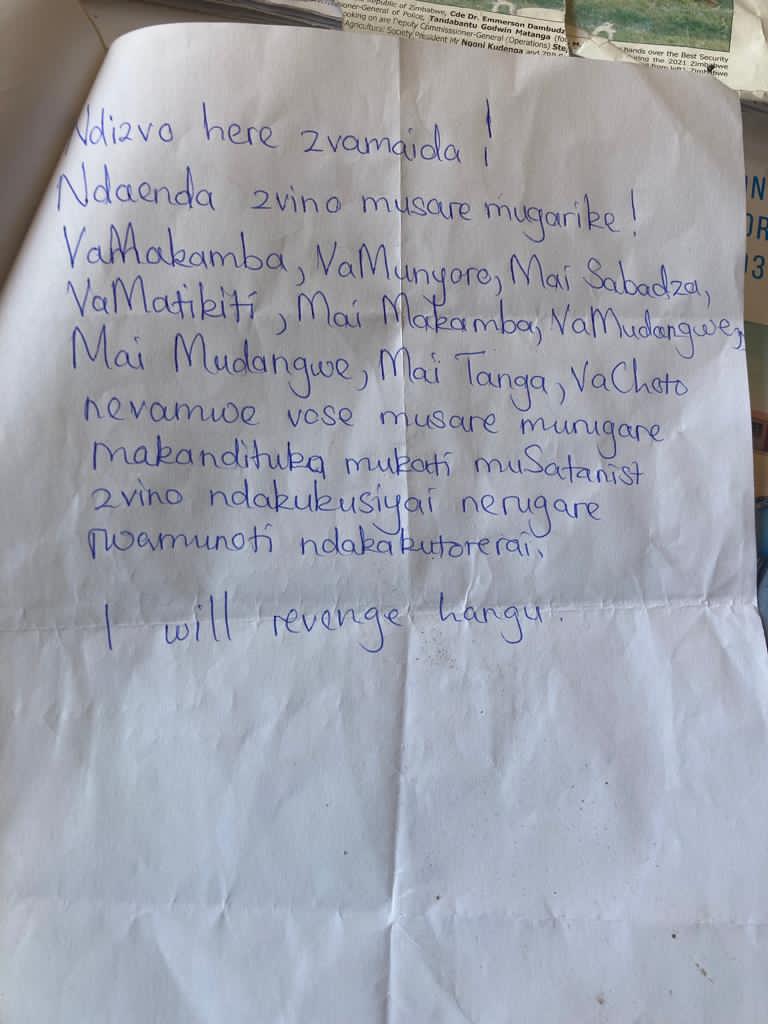 Republic of Zimbabwe, Cde Dr. Emmerson Dambudz
sioner-General of Police, Tandabantu Godwin Matanga (foc
ooking on are Deputy Commissioner-General (Operations) Ste
Agricultural Society President Mr Ngoni Kudenga and
hands over the Best Security
during the 2021 Zimbabwe
from left), Zimbabwe
Ndizvo here zvamaida !
Ndaenda zvino musare mugarike!
VaMakamba, VaMunyore, Mai Sabadza,
VaMatikiti, Mai Makamba, VaMudangwe,
Mai Mudangwe, Mai Tanga, VaChoto
nevamwe vose musare murugare
makandituka mukati muSatanist
zvino ndakukusiyai nerugare
rwamunoti ndakakutorerai.
I will revenge hangu.